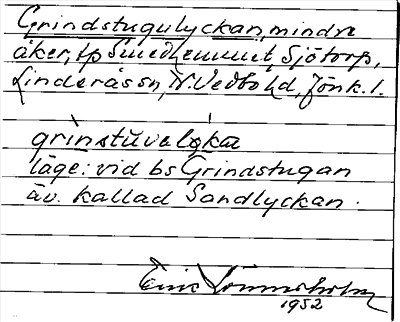 Grindstugulyckan, mindre
åker, tp Smedhemmet, Sjötorp,
Linderås sn, N. Vedbo hd, Jönk. l.
grìnstùvelỳka
läge: vid bs Grindstugan
äv. kallad Sandlyckan.
Eric
1952